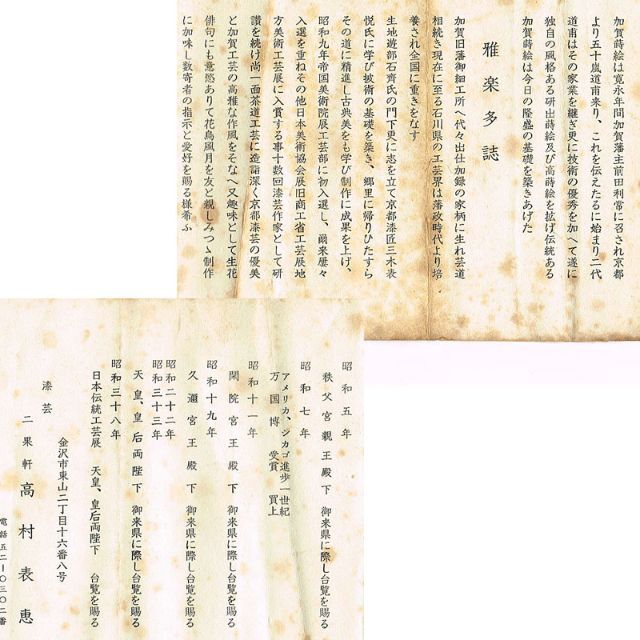 加賀蒔絵は寛永年間加賀藩主前田利常に召され京都
より五十嵐道甫来り、これを伝えたるに始まり二代
道甫はその家業を継ぎ更に技術の優秀を加へて遂に
独自の風格ある研出蒔絵及び高蒔絵を拡げ伝統ある
加賀蒔絵は今日の隆盛の基礎を築きあげた
雅楽多誌
加賀旧藩御細工所へ代々出仕加録の家柄に生れ芸道
相続き現在に至る石川県の工芸界は藩政時代より培
養され全国に重きをなす
生地遊部石齊氏の門下更に志を立て京都漆匠三木表
悦氏に学び披術の基礎を築き、郷里に帰りひたすら
その道に精進し古典美をも学び制作に成果を上げ、
昭和九年帝国美術院展工芸部に初入選し、爾来屡々
入選を重ねその他日本美術協会展旧商工省工芸展地
方美術工芸展に入賞する事十数回漆芸作家として研
讃を続け尚一面茶道工芸に造詣深く京都漆芸の優美
と加賀工芸の高雅な作風をそなへ又趣味として生花
俳句にも意慾ありて花鳥風月を友と親しみつゝ制作
に加味し数寄者の指示と愛好を賜る様希ふ
昭和五年
秩父宮親王殿下 御来県に際し台覧を賜る
昭和七年
アメリカ、シカゴ進歩一世紀
万国博 受賞 買上
昭和十一年
閑院宮王殿下 御来県に際し台覧を賜る
昭和十九年
久邇宮王殿下 御来県に際し台覧を賜る
昭和二十二年
昭和三十三年
天皇、皇后両陛下 御来県に際し台覧を賜る
昭和三十八年
日本伝統工芸展 天皇、皇后両陛下 台覧を賜る
漆芸
金沢市東山二丁目十六番八号
二果軒 高村表恵
電話五二ー〇三〇二番